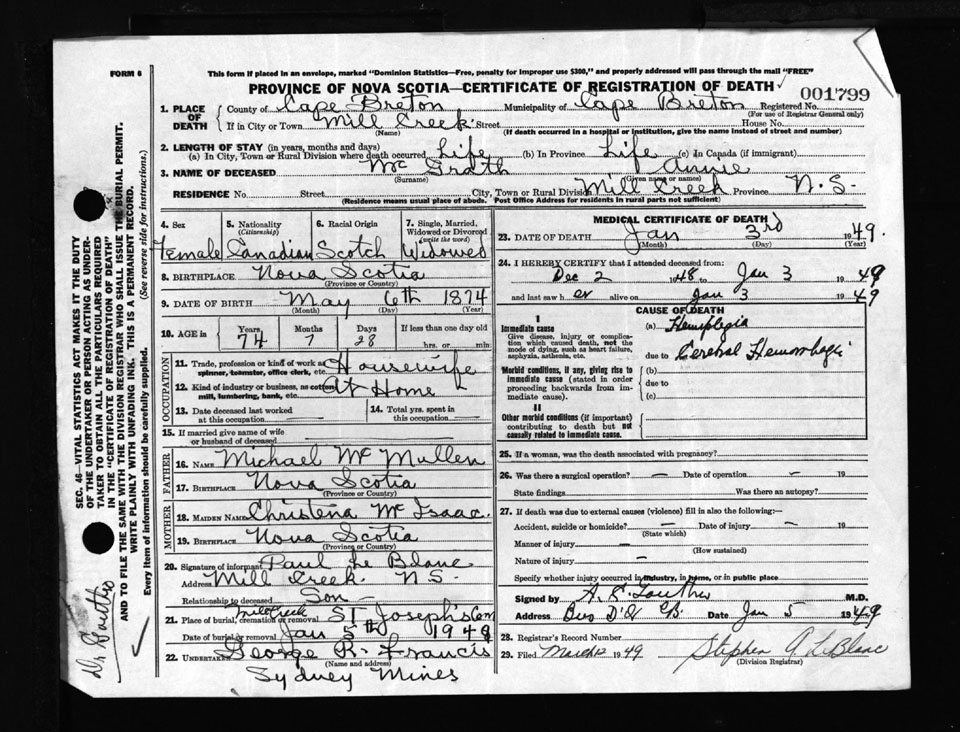 FORM 6
This form if placed in an envelope, marked "Dominion Statistics—Free, penalty for improper use $300," and properly addressed will pass through the mail "FREE"
PROVINCE OF NOVA SCOTIA—CERTIFICATE OF REGISTRATION OF DEATH
001799
1. PLACE OF DEATH County of Cape Breton Municipality of Cape Breton Registered No.
(For use of Registrar General only)
If in City or Town Mill Creek Street House No.
(Name) (If death occurred in a hospital or institution, give the name instead of street and number)
2. LENGTH OF STAY (in years, months and days)
(a) In City, Town or Rural Division where death occurred Life (b) In Province Life (c) In Canada (if immigrant)
3. NAME OF DECEASED Mc Grath Annie
(Surname) (Given name or names)
RESIDENCE No. Street City, Town or Rural Division Mill Creek Province N.S.
(Residence means usual place of abode. Post Office Address for residents in rural parts not sufficient)
4. Sex 5. Nationality (Citizenship) 6. Racial Origin 7. Single, Married, Widowed or Divorced (write the word)
Female Canadian Scotch Widowed
8. BIRTHPLACE Nova Scotia
(Province or Country)
9. DATE OF BIRTH May 6th 1874
(Month) (Day) (Year)
10. AGE in Years 74 Months 7 Days 28 If less than one day old hrs. or min.
OCCUPATION
11. Trade, profession or kind of work as spinner, teamster, office clerk, etc. Housewife
12. Kind of industry or business, as cotton mill, lumbering, bank, etc. At Home
13. Date deceased last worked at this occupation 14. Total yrs. spent in this occupation
15. If married give name of wife or husband of deceased
FATHER
16. NAME Michael Mc Mullen
17. BIRTHPLACE Nova Scotia
(Province or Country)
MOTHER
18. MAIDEN NAME Christena Mc Isaac.
19. BIRTHPLACE Nova Scotia
(Province or Country)
20. Signature of informant Paul Le Blanc
Address Mill Creek. N.S.
Relationship to deceased Son
21. Place of burial, cremation or removal Mill Creek St Joseph's Cem
Date of burial or removal Jan 5th 1949
22. UNDERTAKER George R. Francis
(Name and address)
Sydney Mines
MEDICAL CERTIFICATE OF DEATH
23. DATE OF DEATH Jan 3rd 1949.
(Month) (Day) (Year)
24. I HEREBY CERTIFY that I attended deceased from:
Dec 2 1948 to Jan 3 1949
and last saw her alive on Jan 3 1949
CAUSE OF DEATH
I
Immediate cause (a) Hemiplegia
Give disease, injury or complication which caused death, not the mode of dying, such as heart failure, asphyxia, asthenia, etc.
due to Cerebral Hemorrhage
Morbid conditions, if any, giving rise to immediate cause (stated in order proceeding backwards from immediate cause).
(b)
due to
(c)
II
Other morbid conditions (if important) contributing to death but not causally related to immediate cause.
25. If a woman, was the death associated with pregnancy?
26. Was there a surgical operation? — Date of operation — 19
State findings Was there an autopsy?
27. If death was due to external causes (violence) fill in also the following:—
Accident, suicide or homicide? — Date of injury — 19
(State which)
Manner of injury —
(How sustained)
Nature of injury —
Specify whether injury occurred in industry, in home, or in public place
Signed by M.D.
Address Date Jan 5 1949
28. Registrar's Record Number
29. Filed March 12 1949 Stephen A. LeBlanc
(Division Registrar)
SEC. 46—VITAL STATISTICS ACT MAKES IT THE DUTY OF THE UNDERTAKER OR PERSON ACTING AS UNDERTAKER TO OBTAIN ALL THE PARTICULARS REQUIRED IN THE "CERTIFICATE OF REGISTRATION OF DEATH" AND TO FILE THE SAME WITH THE DIVISION REGISTRAR WHO SHALL ISSUE THE BURIAL PERMIT.
WRITE PLAINLY WITH UNFADING INK. THIS IS A PERMANENT RECORD.
Every item of information should be carefully supplied. (See reverse side for instructions.)